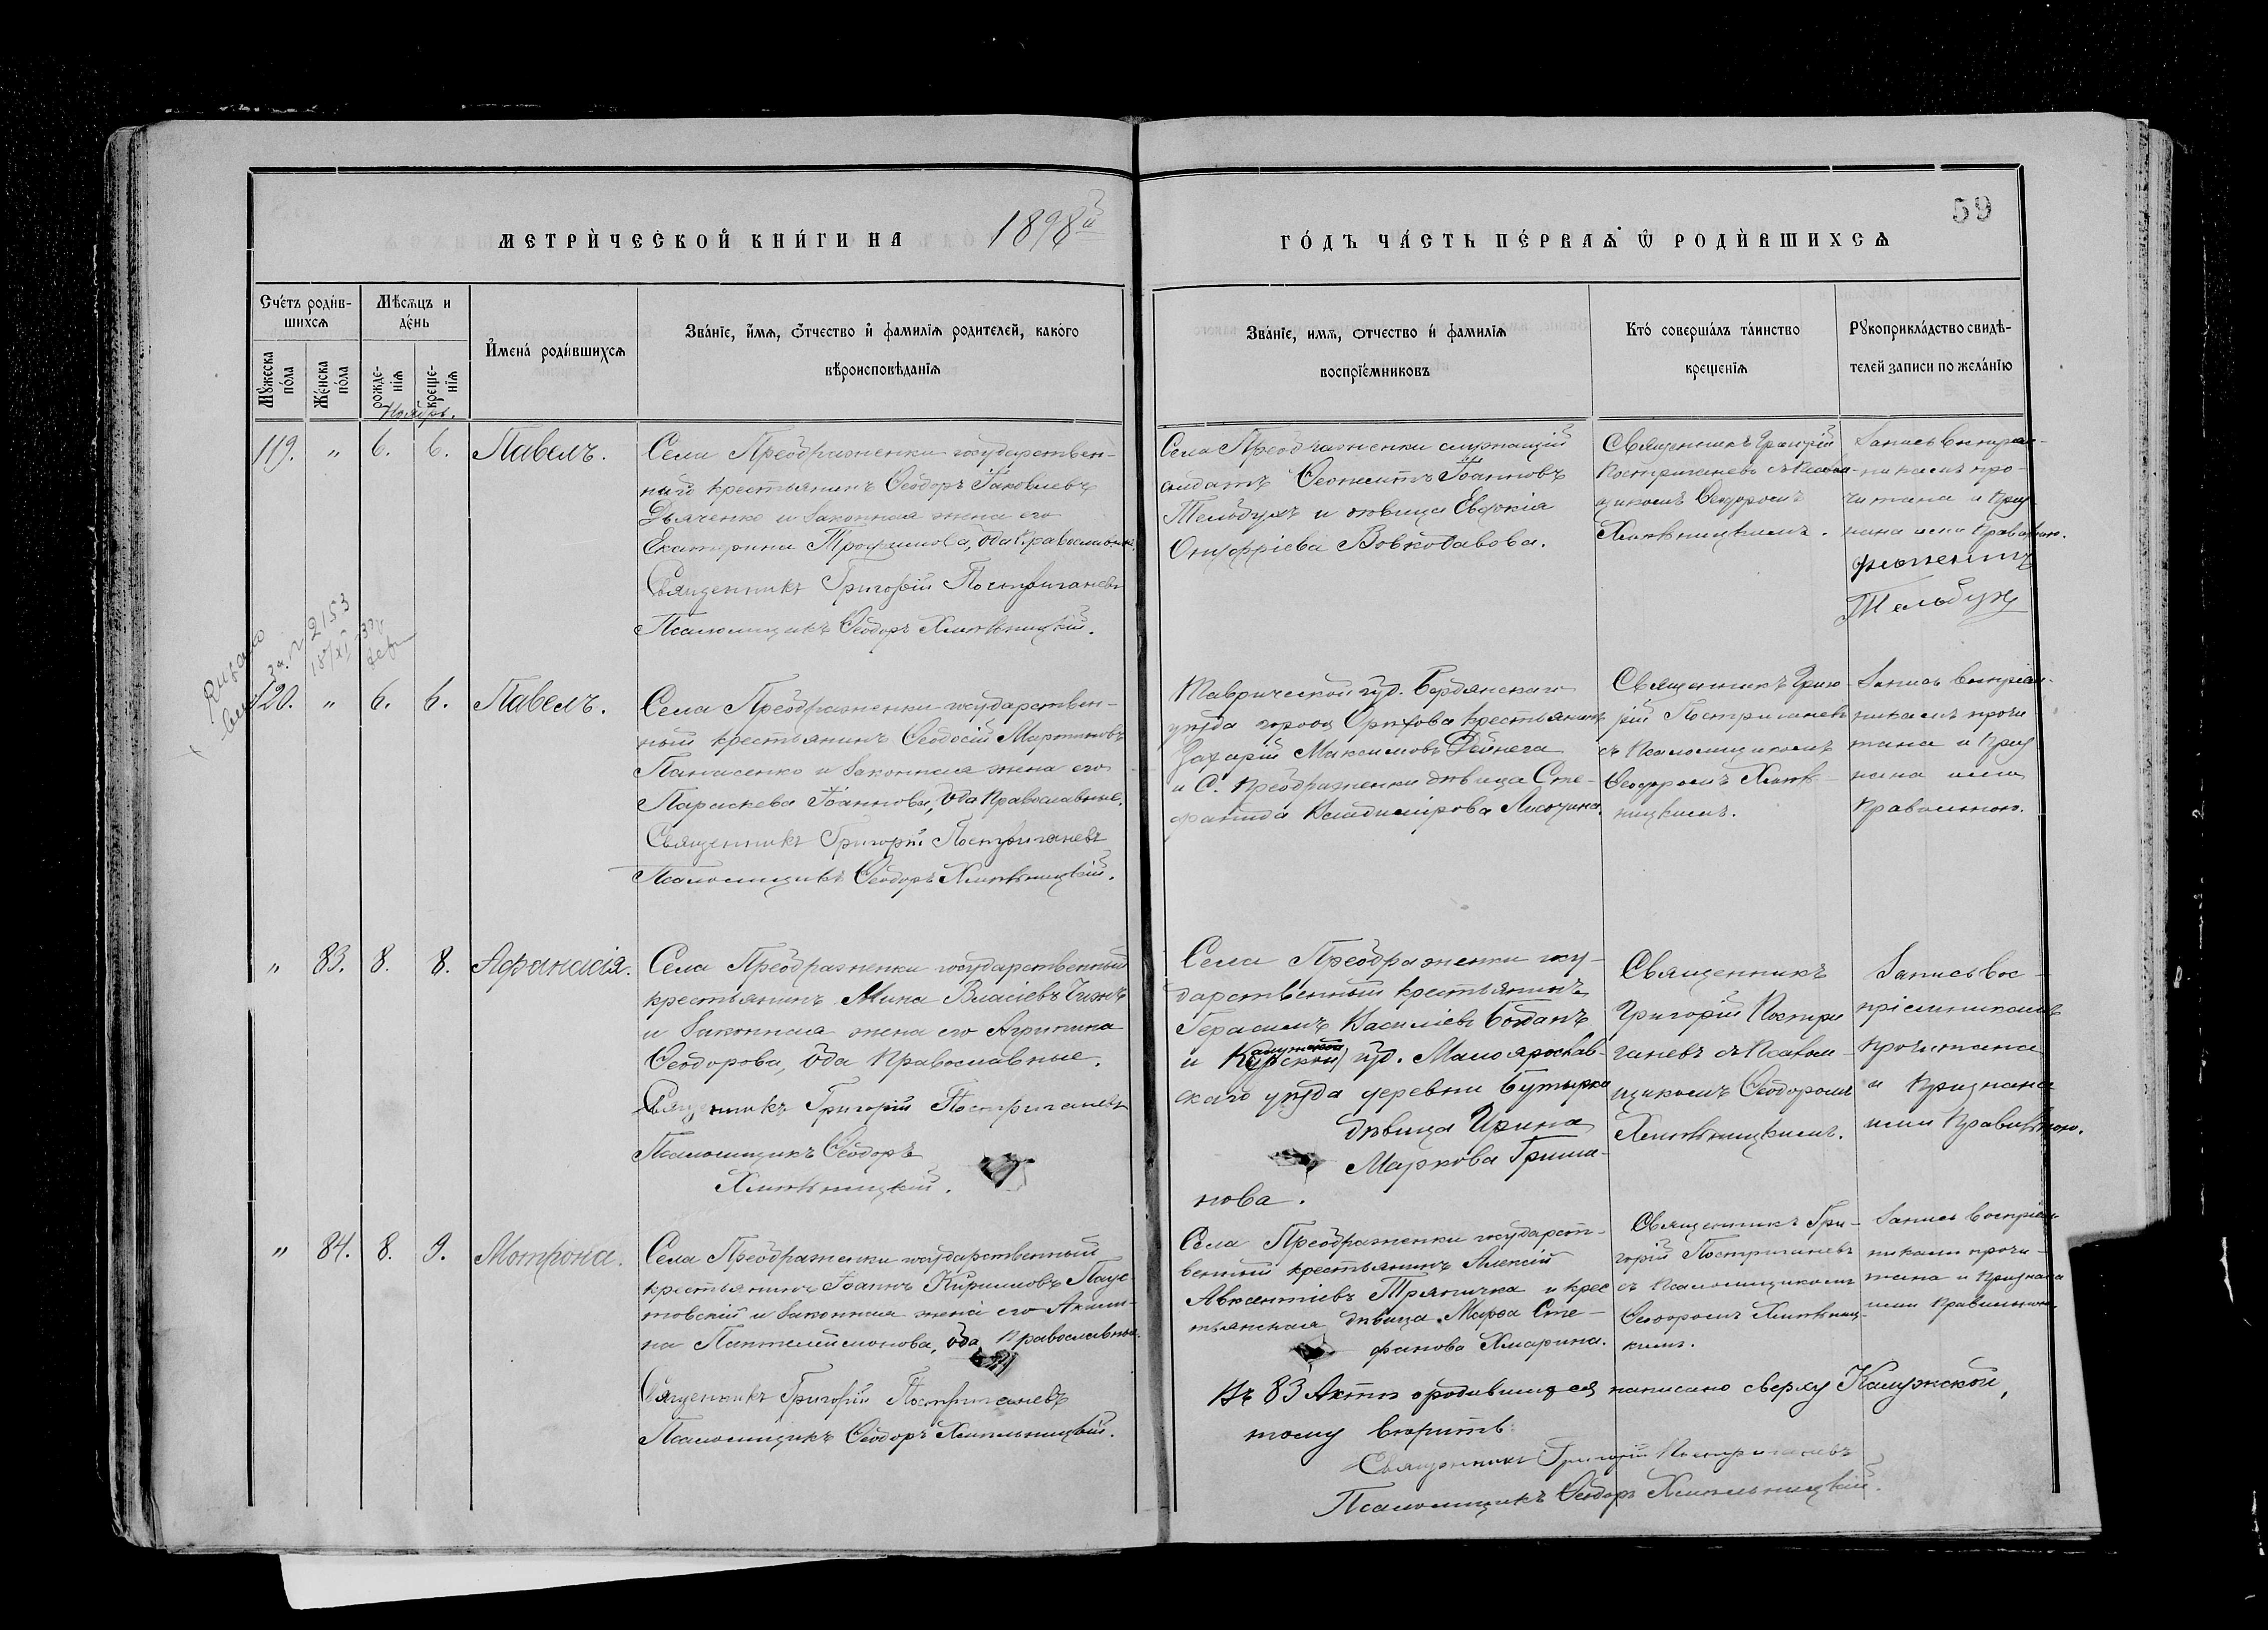 59
МЕТРИЧЕСКОЙ КНИГИ НА 1898й
ГОДЪ ЧАСТЬ ПЕРВАЯ Ѡ РОДИВШИХСЯ
Счетъ родив-
шихся
Мѣсяцъ и
день
Мужеска
пола
Женска
пола
рожде-
нія
креще-
нія
Имена родившихся
Званіе, имя, отчество и фамилія родителей, какого
вѣроисповѣданія
Званіе, имя, отчество и фамилія
воспріемниковъ
Кто совершалъ таинство
крещенія
Рукоприкладство свидѣ-
телей записи по желанію
Ноябрь.
119. " 6. 6. Павелъ.
Села Преображенки государствен-
ный крестьянинъ Ѳеодоръ Іаковлевъ
Дьяченко и законная жена его
Екатерина Трофимова, оба Православные.
Священникъ Григорій Постригачевъ
Псаломщикъ Ѳеодоръ Хмѣльницкій.
Села Преображенки служащій
солдатъ Іоанновъ
Тельбухъ и дѣвица Евдокія
Онуфріева Вовкодавова.
Священникъ Григорій
Постригачевъ съ Псалом-
щикомъ Ѳеодоромъ
Хмѣльницкимъ.
Запись воспріем-
никамъ про-
читана и приз
нана ими правильною.
Тельбухъ
2153
120. " 6. 6. Павелъ.
Села Преображенки государствен-
ный крестьянинъ Ѳеодосій Мартиновъ
Панасенко и законная жена его
Параскева Іоаннова, оба Православные.
Священникъ Григорій Постригачевъ
Псаломщикъ Ѳеодоръ Хмѣльницкій.
Таврической губ. Бердянскаго
уѣзда города Орѣхова крестьянинъ
Захарій Максимовъ Дейнега
и С. Преображенки дѣвица Сте-
фанида Владимирова
Священникъ Григо
рій Постригачевъ
съ Псаломщикомъ
Ѳеодоромъ Хмѣль-
ницкимъ.
Запись воспріем-
никамъ прочи
тана и приз
нана ими
правильною.
" 83. 8. 8. Афанасія.
Села Преображенки государственный
крестьянинъ Мина Власіевъ Чижъ
и законная жена его Агрипина
Ѳеодорова, оба Православные.
Священникъ Григорій Постригачевъ
Псаломщикъ Ѳеодоръ
Хмѣльницкій.
Села Преображенки госу-
дарственный крестьянинъ
Герасимъ Василіевъ Богданъ
Калужской
и Курской губ. Малоярослав-
скаго уѣзда деревни Бутырка
дѣвица Ирина
Маркова Гриша-
нова.
Священникъ
Григорій Постри
гачевъ съ Псалом-
щикомъ Ѳеодоромъ
Хмѣльницкимъ.
Запись вос-
пріемникамъ
прочитана
и признана
ими правильною.
" 84. 8. 9. Мотрона.
Села Преображенки государственный
крестьянинъ Іоаннъ Кирилловъ Паце-
товскій и законная жена его Акили-
на Пантелеймонова, оба Православные.
Священникъ Григорій Постригачевъ
Псаломщикъ Ѳеодоръ Хмѣльницкій.
Села Преображенки государст-
венный крестьянинъ Алексій
Авксентіевъ Тряпичка и крес
тьянская дѣвица Марѳа Сте-
фанова Хмарина.
Священникъ Гри-
горій Постригачевъ
съ Псаломщикомъ
Ѳеодоромъ Хмѣльниц-
кимъ.
Запись воспріем-
никами прочи-
тана и признана
ими правильною.
Въ 83 Актѣ о родившихся написано сверху Калужской,
тому вѣрить.
Священникъ Григорій Постригачевъ
Псаломщикъ Ѳеодоръ Хмѣльницкій.